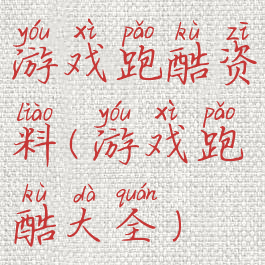 yóu xì pǎo kù zī
游戏跑酷资
liào yóu xì pǎo
料(游戏跑
kù dà quán
酷大全)